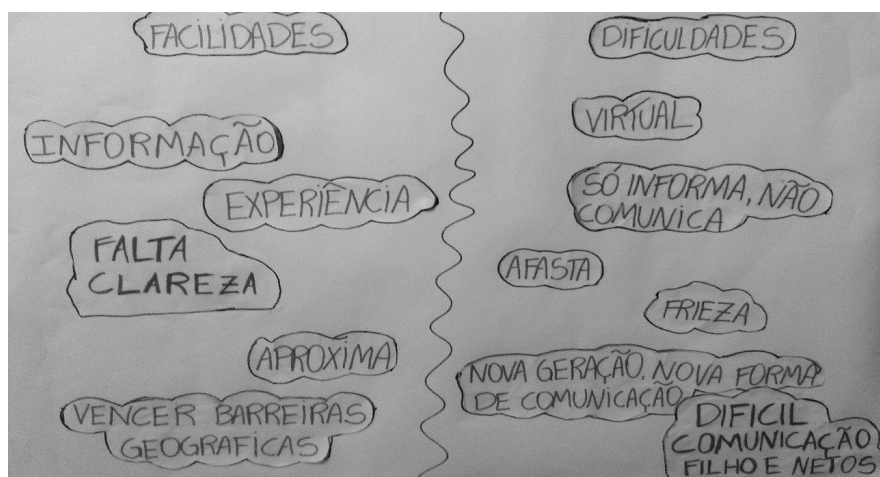 FACILIDADES
INFORMAÇÃO
EXPERIÊNCIA
FALTA
CLAREZA
APROXIMA
VENCER BARREIRAS
GEOGRAFICAS
DIFICULDADES
VIRTUAL
SÓ INFORMA, NÃO
COMUNICA
AFASTA
FRIEZA
NOVA GERAÇÃO, NOVA FORMA
DE COMUNICAÇÃO
DIFICIL
COMUNICAÇÃO
FILHO E NETOS